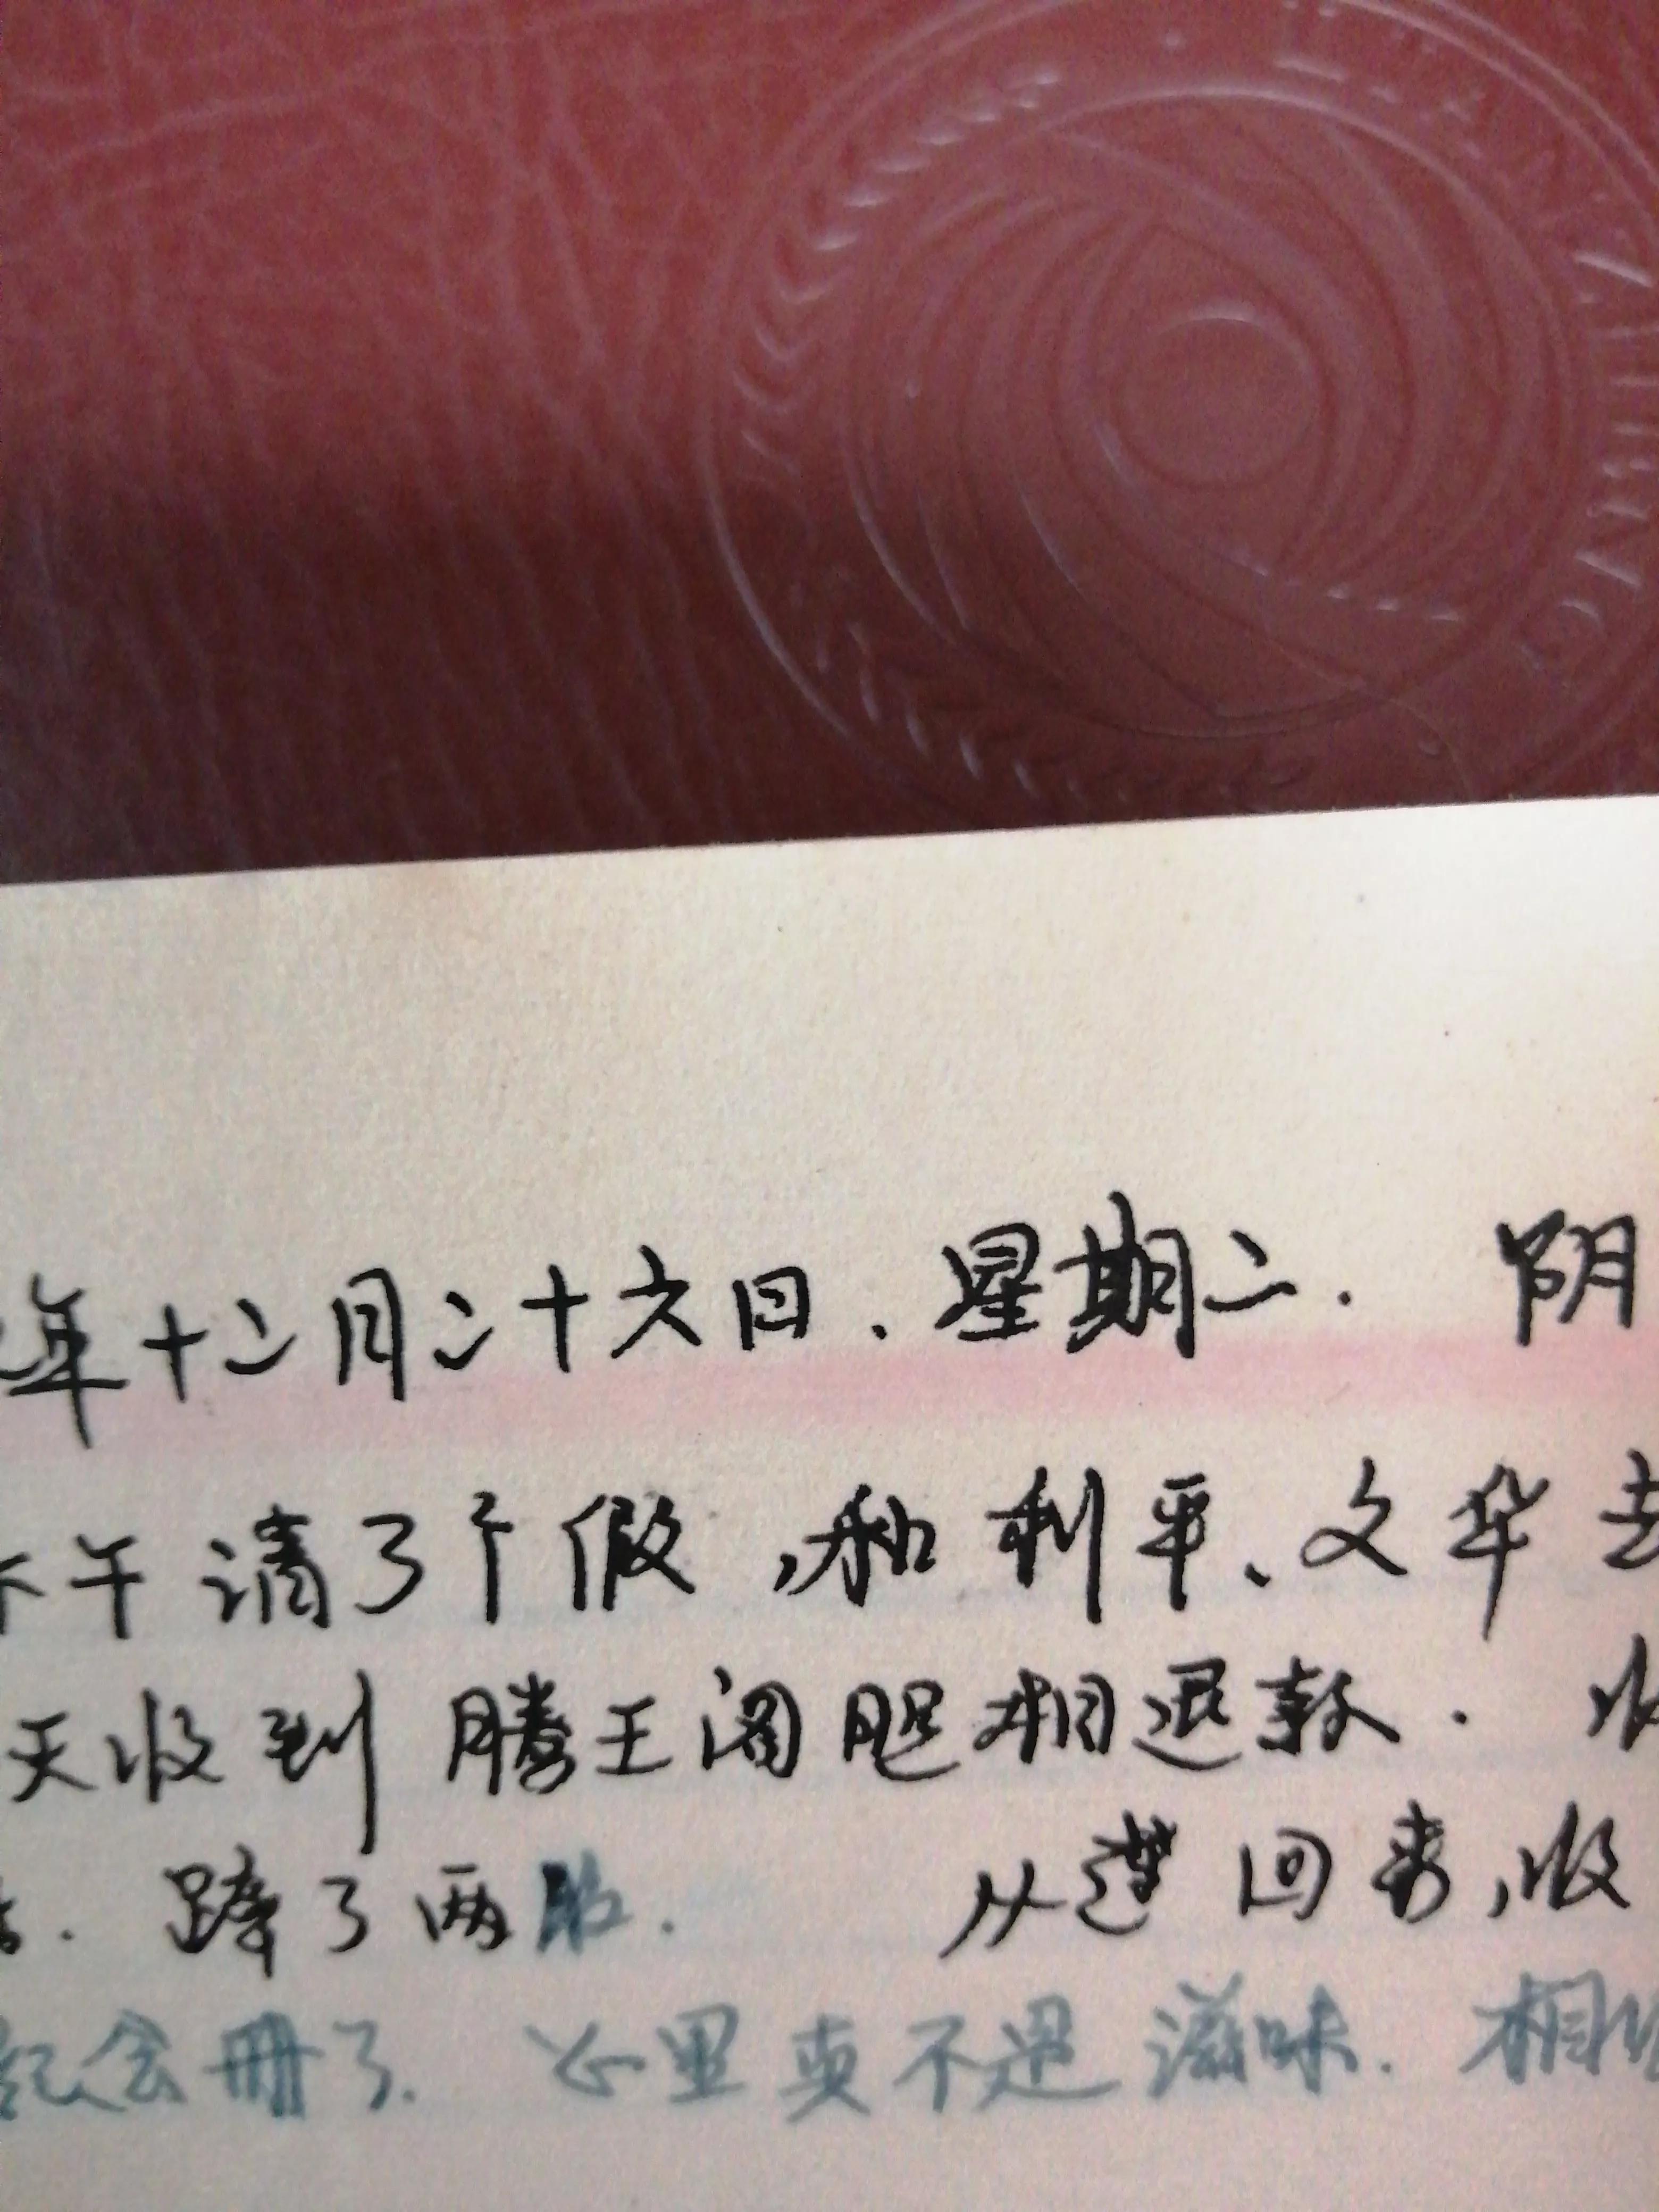 年十二月二十六日.星期二. 阴
下午请了个假,和利平、文华去
天收到滕王阁胆相退款. 收
蹲了两 . 从 回来,收
纪念册了. 心里真不是滋味. 相